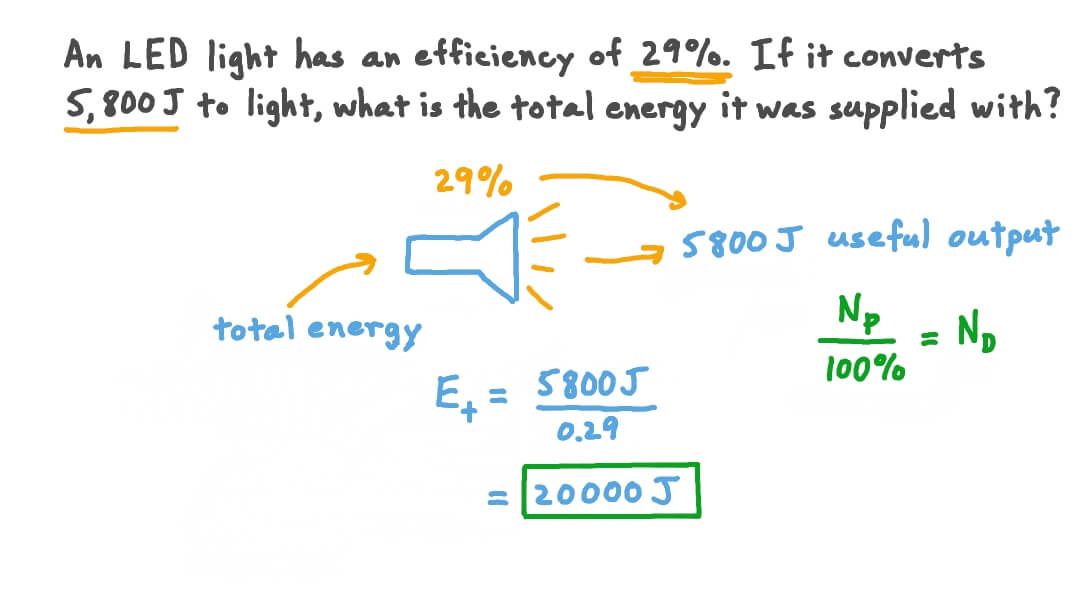 An LED light has an efficiency of 29%. If it converts
5,800 J to light, what is the total energy it was supplied with?
29%
5800 J useful output
total energy
N_P / 100% = N_D
E_t = 5800 J / 0.29
= 20000 J